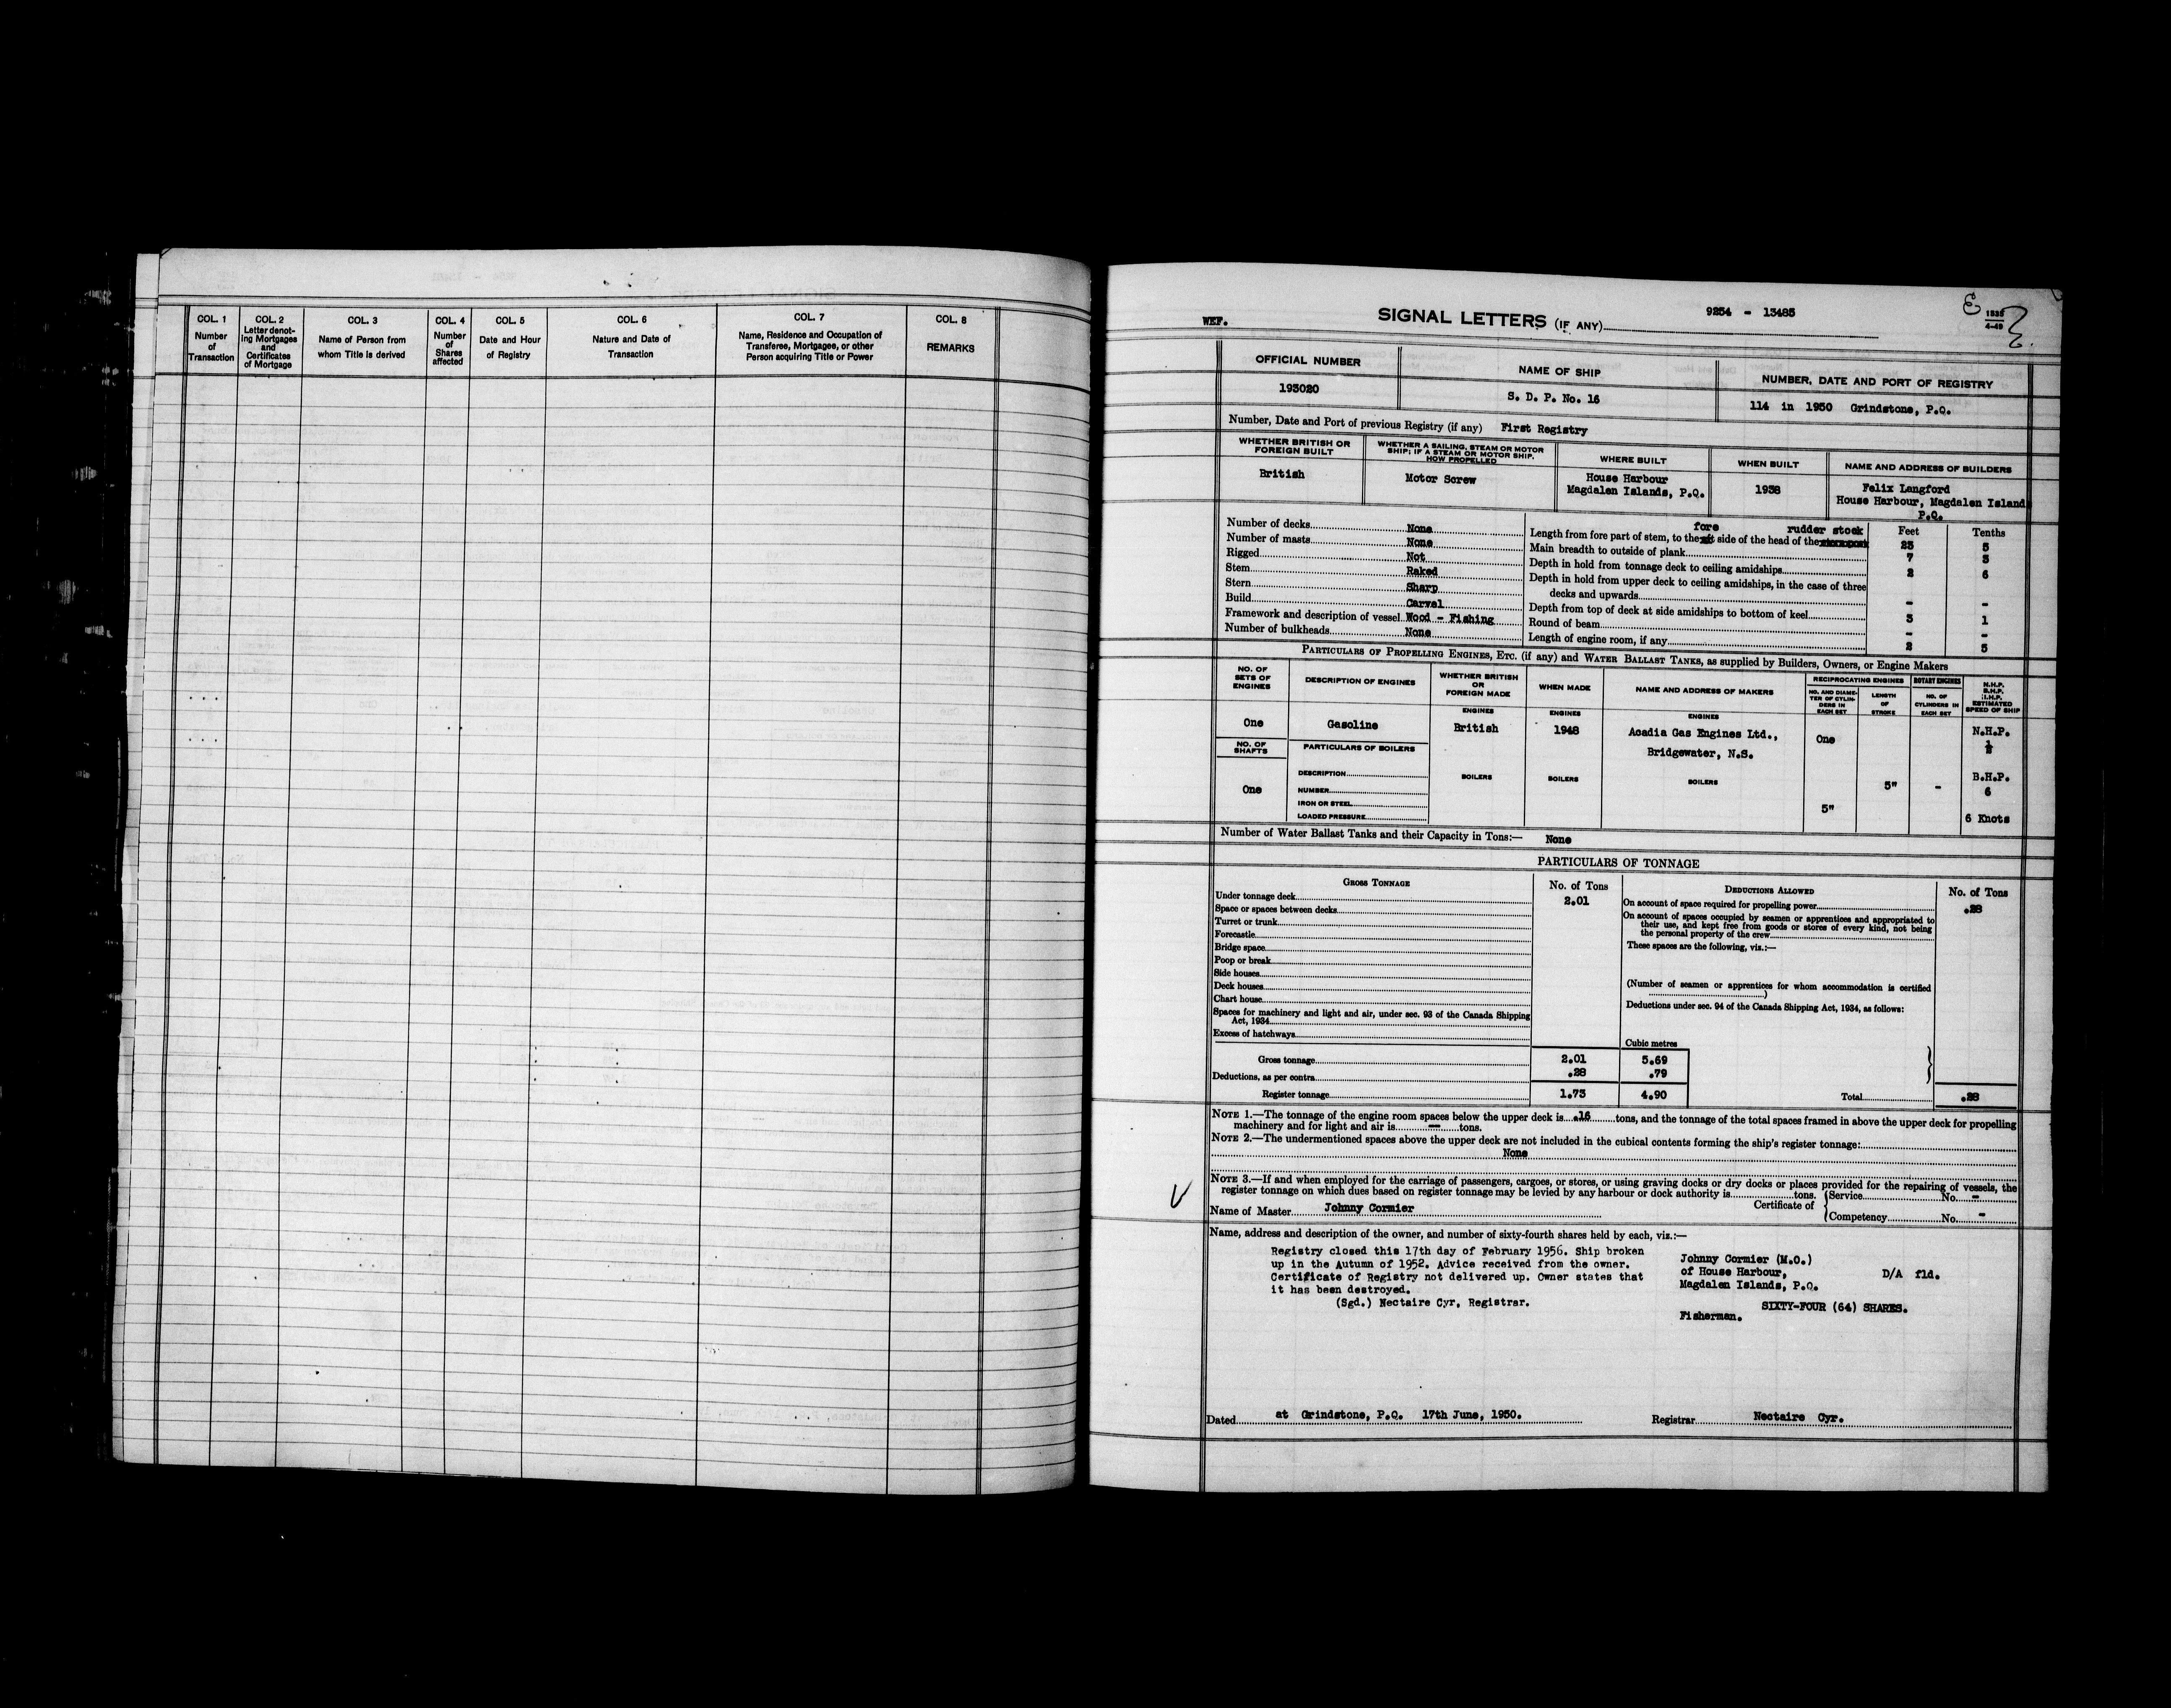 COL. 1
Number
of
Transaction
COL. 2
Letter denot-
ing Mortgages
and
Certificates
of Mortgage
COL. 3
Name of Person from
whom Title is derived
COL. 4
Number
of
Shares
affected
COL. 5
Date and Hour
of Registry
COL. 6
Nature and Date of
Transaction
COL. 7
Name, Residence and Occupation of
Transferee, Mortgagee, or other
Person acquiring Title or Power
COL. 8
REMARKS
WEF.
SIGNAL LETTERS (IF ANY)
9254 - 13485
4-49
OFFICIAL NUMBER
193020
NAME OF SHIP
S. D. P. No. 16
NUMBER, DATE AND PORT OF REGISTRY
114 in 1950 Grindstone, P.Q.
Number, Date and Port of previous Registry (if any) First Registry
WHETHER BRITISH OR
FOREIGN BUILT
British
WHETHER A SAILING, STEAM OR MOTOR
SHIP; IF A STEAM OR MOTOR SHIP,
HOW PROPELLED
Motor Screw
WHERE BUILT
House Harbour
Magdalen Islands, P.Q.
WHEN BUILT
1938
NAME AND ADDRESS OF BUILDERS
Felix Langford
House Harbour, Magdalen Islands
P.Q.
Number of decks None
Number of masts None
Rigged Not
Stem Raked
Stern Sharp
Build Carvel
Framework and description of vessel Wood - Fishing
Number of bulkheads None
Feet Tenths
fore rudder stock
Length from fore part of stem, to the aft side of the head of the sternpost 23 5
Main breadth to outside of plank 7 3
Depth in hold from tonnage deck to ceiling amidships 2 6
Depth in hold from upper deck to ceiling amidships, in the case of three
decks and upwards - -
Depth from top of deck at side amidships to bottom of keel 3 1
Round of beam - -
Length of engine room, if any 2 5
PARTICULARS OF PROPELLING ENGINES, ETC. (if any) and WATER BALLAST TANKS, as supplied by Builders, Owners, or Engine Makers
NO. OF
SETS OF
ENGINES
One
NO. OF
SHAFTS
One
DESCRIPTION OF ENGINES
Gasoline
PARTICULARS OF BOILERS
DESCRIPTION
NUMBER
IRON OR STEEL
LOADED PRESSURE
WHETHER BRITISH
OR
FOREIGN MADE
ENGINES
British
BOILERS
WHEN MADE
ENGINES
1948
BOILERS
NAME AND ADDRESS OF MAKERS
ENGINES
Acadia Gas Engines Ltd.,
Bridgewater, N.S.
BOILERS
RECIPROCATING ENGINES
NO. AND DIAME-
TER OF CYLIN-
DERS IN
EACH SET
One
5"
LENGTH
OF
STROKE
5"
ROTARY ENGINES
NO. OF
CYLINDERS IN
EACH SET
-
N.H.P.
B.H.P.
I.H.P.
ESTIMATED
SPEED OF SHIP
N.H.P.
½
B.H.P.
6
6 Knots
Number of Water Ballast Tanks and their Capacity in Tons:— None
PARTICULARS OF TONNAGE
GROSS TONNAGE
No. of Tons
Under tonnage deck 2.01
Space or spaces between decks
Turret or trunk
Forecastle
Bridge space
Poop or break
Side houses
Deck houses
Chart house
Spaces for machinery and light and air, under sec. 93 of the Canada Shipping
Act, 1934
Excess of hatchways
Cubic metres
Gross tonnage 2.01 5.69
Deductions, as per contra .28 .79
Register tonnage 1.73 4.90
DEDUCTIONS ALLOWED
No. of Tons
On account of space required for propelling power .28
On account of spaces occupied by seamen or apprentices and appropriated to
their use, and kept free from goods or stores of every kind, not being
the personal property of the crew
These spaces are the following, viz.:—
(Number of seamen or apprentices for whom accommodation is certified
)
Deductions under sec. 94 of the Canada Shipping Act, 1934, as follows:
Total .28
NOTE 1.—The tonnage of the engine room spaces below the upper deck is .16 tons, and the tonnage of the total spaces framed in above the upper deck for propelling
machinery and for light and air is — tons.
NOTE 2.—The undermentioned spaces above the upper deck are not included in the cubical contents forming the ship's register tonnage:
None
NOTE 3.—If and when employed for the carriage of passengers, cargoes, or stores, or using graving docks or dry docks or places provided for the repairing of vessels, the
register tonnage on which dues based on register tonnage may be levied by any harbour or dock authority is tons.
Name of Master Johnny Cormier
Certificate of
Service No. -
Competency No. -
Name, address and description of the owner, and number of sixty-fourth shares held by each, viz.:—
Registry closed this 17th day of February 1956. Ship broken
up in the Autumn of 1952. Advice received from the owner.
Certificate of Registry not delivered up. Owner states that
it has been destroyed.
(Sgd.) Nectaire Cyr, Registrar.
Johnny Cormier (M.O.)
of House Harbour,
Magdalen Islands, P.Q.
D/A fld.
SIXTY-FOUR (64) SHARES.
Fisherman.
Dated at Grindstone, P.Q. 17th June, 1950.
Registrar Nectaire Cyr.